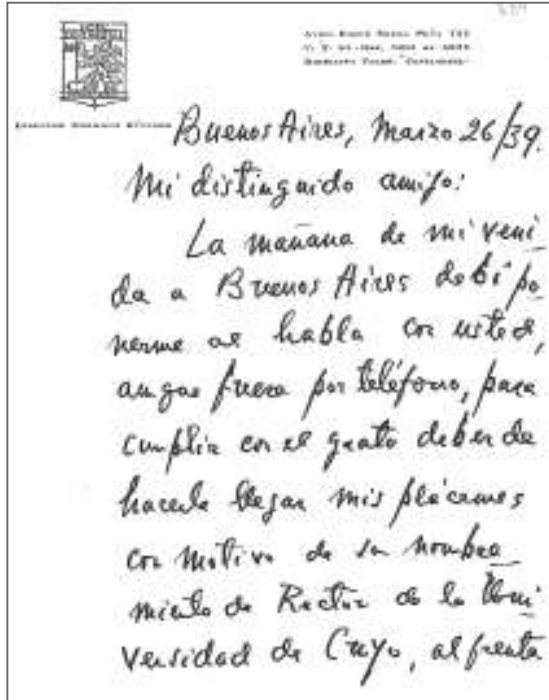 Buenos Aires, Marzo 26/39.
Mi distinguido amigo:
La mañana de mi veni
da a Buenos Aires debí po
nerme al habla con usted,
aunque fuera por teléfono, para
cumplir con el grato deber de
hacerle llegar mis plácemes
con motivo de su nombra
miento de Rector de la Uni
versidad de Cuyo, al frente